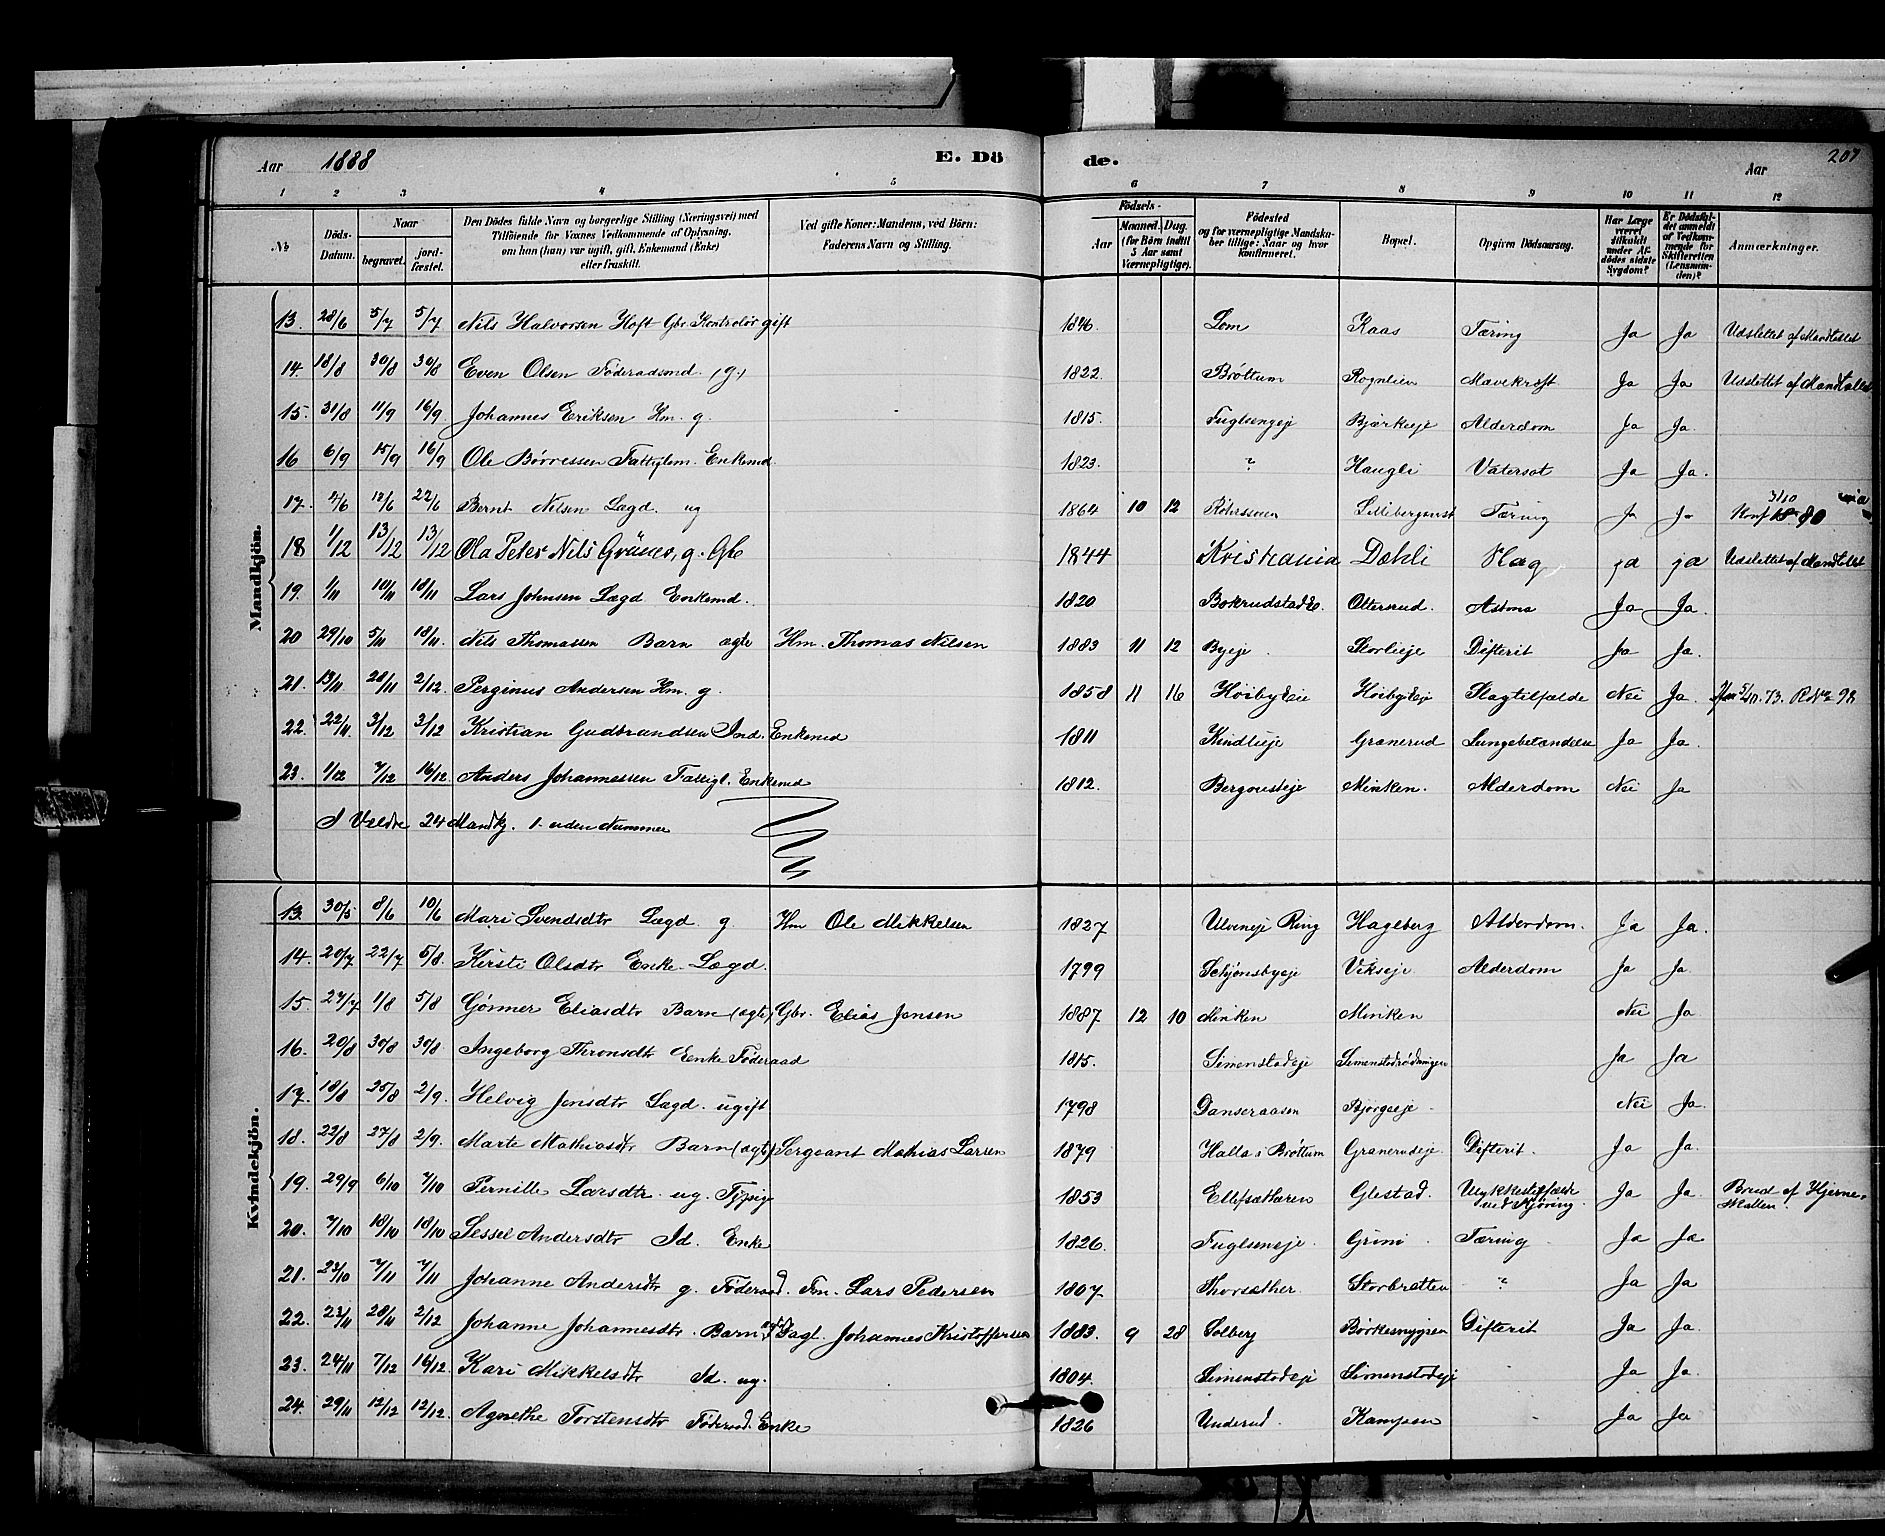 Aar 1888 E. Dö de. Aar 207
1 2 3 4 5 6 7 8 9 10 11 12
№ Döds-Datum. Naar begravet. jordfæstet. Den Dödes fulde Navn og borgerlige Stilling (Næringsvei) med Tilföiende for Voxnes Vedkommende af Oplysning, om han (hun) var ugift, gift, Enkemand (Enke) eller fraskilt. Ved gifte Koner: Mandens, ved Börn: Faderens Navn og Stilling. Födsels- Aar Maaned. Dag. (for Börn indtil 5 Aar samt Værnepligtige). Födested og for værnepligtige Mandskaber tillige: Naar og hvor konfirmeret. Bopæl. Opgiven Dödsaarsag. Har Læge været tilkaldt under Afdödes sidste Sygdom? Er Dödsfaldet anmeldt af Vedkommende for Skifteretten (Lensmanden)? Anmærkninger.
Mandkjön.
13. 28/6 5/7 5/7 Nils Halvorsen Hoft Gbr. Kontrolör gift 1846. Lom Kaas Tæring Ja Ja Udslettet af Mandtallet
14. 18/8 30/8 30/8 Even Olsen Föderadsmd. (g.) 1822. Bröttum Rognlien Mavekræft Ja Ja Udslettet af Mandtallet
15. 31/8 11/9 16/9 Johannes Eriksen Hm. g. 1815. Fuglsengeje Bjærkeeje Alderdom Ja Ja.
16 6/9 15/9 16/9 Ole Börresen Fattiglem. Enkemd. 1823. " Haugli Vatersot Ja Ja.
17. 4/6 12/6 22/6 Bernt Nilsen Lægd. ug 1864 10 12 Tæring Ja Ja Konf 3/10 1880
18 1/12 13/12 13/12 Ola Peter Nils Grüner, g. Gbr 1844 Kristiania Dæhli Slag ja ja Udslettet af Mandtallet
19. 1/11 10/11 18/11 Lars Johnsen Lægd Enkemd. 1820 Ottersrud. Astma Ja Ja.
20 29/10 5/11 18/11. Nils Thomassen Barn ægte Hm. Thomas Nilsen 1883 11 12 Byeje. Storlieje Difterit Ja Ja.
21. 13/11 20/11 2/12. Perginus Andersen Hm. g. 1858 11 16 Höibyeie Höibyeje Slagtilfælde Nei Ja.
22. 22/11. 3/12 3/12 Kristian Gudbrandsen Ind. Enkemd 1811 Kindlieje Granerud Lungebetændelse Ja Ja.
23. 1/12 7/12 16/12. Anders Johannessen Fattigl. Enkemd 1812. Bergouseje Minken. Alderdom Nei Ja
I Veldre 24 Mandkj. 1 uden Nummer
Kvindekjön.
13. 30/5 8/6 10/6 Mari Svendsdtr Lægd g. Hm Ole Mikkelsen 1827 Ulveneje Ring Hageberg Alderdom. Ja Ja.
14. 20/7 22/7 5/8. Kirsti Olsdtr Enke Lægd. 1799 Schjønsbyeje Vekseje. Alderdom Ja Ja
15. 27/7 1/8 5/8 Gönner Eliasdtr Barn (ægte) Gbr. Elias Jensen 1887 12 10 Minken Minken Nei Ja
16. 20/8 30/8 30/8 Ingeborg Thronsdtr Eenke Föderaad 1815. Simenstadeje Ja Ja
17. 18/8 25/8 2/9. Helvig Jensdtr Lægd. ugift 1798 Danseraasen Bjørgeeje. Nei Ja.
18. 22/8 27/8 2/9. Marte Mathiasdtr Barn (ægte) Sergeant Mathias Larsen 1879 Halla i Bröttum Granerudeje. Difterit. Ja Ja.
19. 29/9 6/10 7/10 Pernille Larsdtr. ug. 1853 Ellefsæteren Glestad. Ulykkestilfælde ved Kjöring. Ja Ja. Brud af Hjerneskallen.
20. 7/10 18/10 18/10 Sessel Andersdtr Id. Enke 1826. Fuglseneje. Grini. Tæring Ja Ja
21. 23/10 7/11 7/11 Johanne Andersdtr g. Föderaad. Fm. Lars Pedersen 1807. Thorsæther Storbratten " Ja Ja
22. 23/11 28/11 2/12 Johanne Johannesdtr. Barn ægte Dagl. Johannes Kristoffersen 1883. 9 28 Solberg Difterit Ja Ja.
23. 24/11 7/12 16/12. Kari Mikkelsdtr Id. ug. 1804. Simenstadeje Simenstadeje Ja Ja.
24. 29/11 12/12 12/12. Agnethe Torstensdtr Föderaad. Enke 1826 Underud. Kampsen Ja Ja